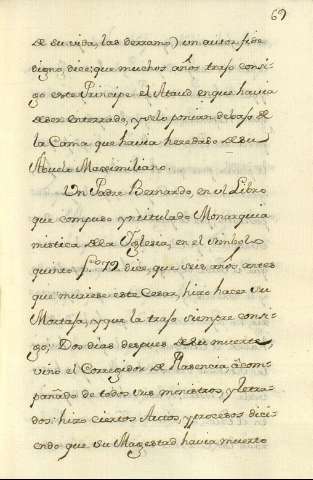 69
de su vida, las derramo) un autor fide
digno, dice: que muchos años trajo consi-
go este Principe el Ataud en que havia
de ser enterrado, y se lo ponian debajo de
la Cama, que havia heredado de su
Abuelo Maximiliano.
Un Padre Bernardo, en el Libro
que compuso yntitulado Monarquia
mistica de la Yglesia, en el simbolo
quinto fo. 72 dice, que seis años, antes
que muriese este Cesar, hizo hacer su
Mortaja, y que la trajo siempre consi-
go; Dos dias despues de su muerte,
vino el Corregidor de Plasencia acom-
pañado de todos sus ministros, y letra-
dos: hizo ciertos Autos, y procesos dici-
endo que su Magestad havia muerto